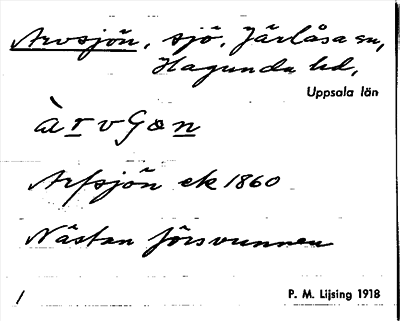 Arvsjön, sjö, Järlåsa sn,
Hagunda hd,
Uppsala län
àrvGøn
Arfsjön ek 1860
Nästan försvunnen
/ P. M. Lijsing 1918